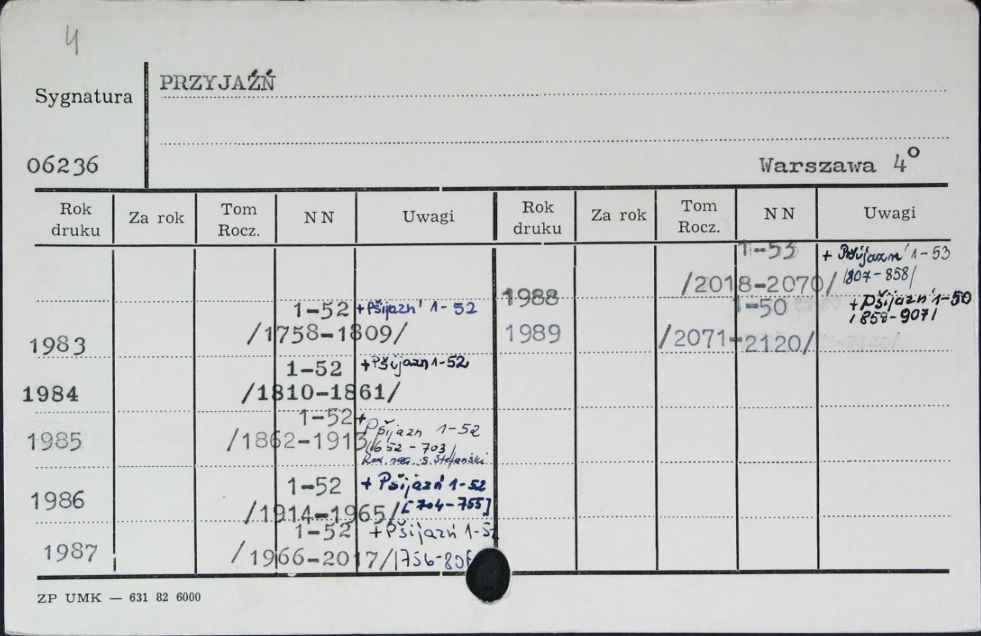 4
PRZYJAŹŃ
Sygnatura
06236
Warszawa 4°
Rok druku Za rok Tom Rocz. NN Uwagi Rok druku Za rok Tom Rocz. NN Uwagi
1-52 +Pšijazń 1-52
1983 /1758-1809/
1-52 +Pšijazn 1-52
1984 /1810-1861/
1-52 + Pšijazn 1-52
1985 /1862-1913/ /652-703/
1-52 + Pšijazń 1-52
1986 /1914-1965/ [704-755]
1-52 +Pšijazń 1-52
1987 /1966-2017/ /756-806
1-53 + Pšijazn' 1-53
1988 /2018-2070/ /807-858/
1-50 + Pšijazń 1-50
1989 /2071-2120/ /858-907/
ZP UMK — 631 82 6000